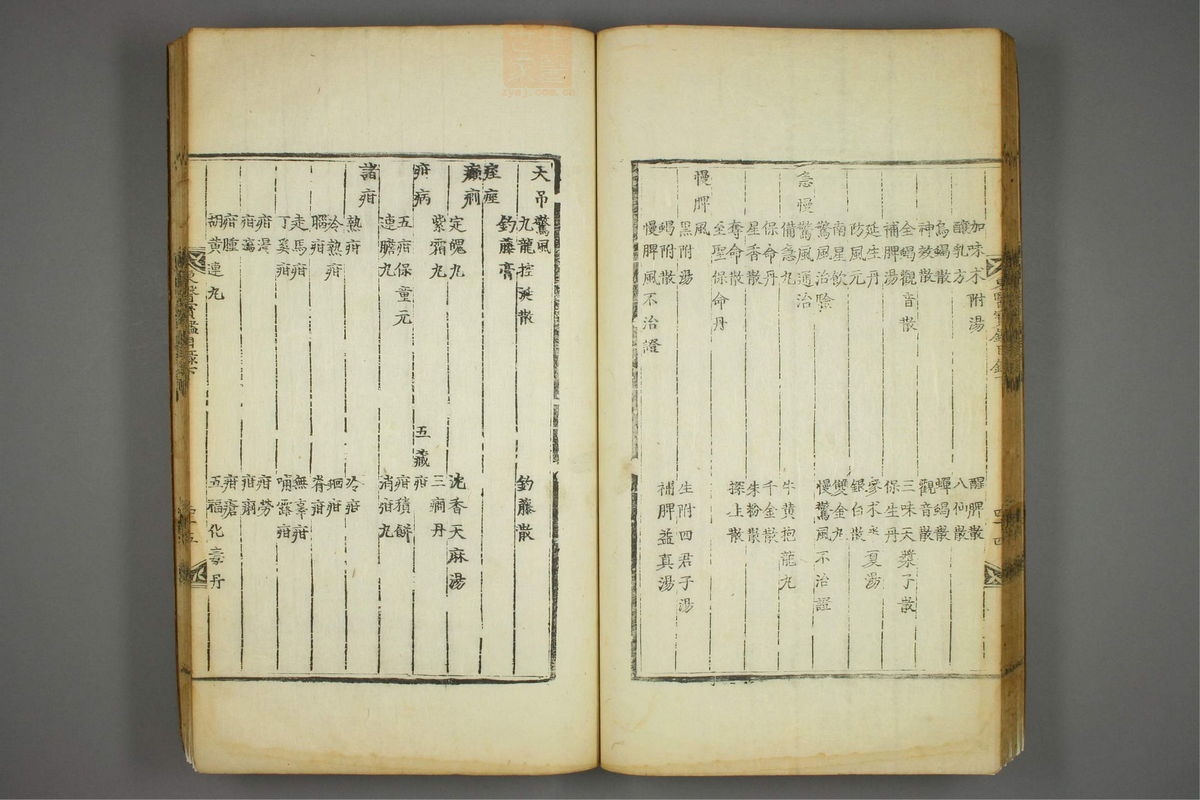 加味朮附湯　醒脾散
醎乳方　八仙散
烏蝎散　蟬蝎散
神效散　觀音散
全蝎觀音散　三味天漿子散
補脾湯　保生丹
延生丹　參朮半夏湯
防風元　銀白散
南星飲　雙金丸
驚風治驗　慢驚風不治證
急慢驚風通治
備急丸　牛黃抱龍丸
保命丹　千金散
星香散　朱粉散
奪命散　探上散
至聖保命丹
慢脾風
黑附湯　生附四君子湯
蝎附散　補脾益真湯
慢脾風不治證
東醫寶鑑目錄下
四十四
天吊驚風
九龍控涎散　釣藤散
釣藤膏
痓痙
癲癎
定魄丸　沈香天麻湯
紫霜丸　三癎丹
疳病　五藏疳
五疳保童元　疳積餅
連膽丸　消疳丸
諸疳
熱疳　冷疳
冷熱疳　蛔疳
腦疳　脊疳
走馬疳　無辜疳
丁奚疳　哺露疳
疳渴　疳勞
疳瀉　疳痢
疳腫　疳瘡
胡黃連丸　五福化毒丹
東醫寶鑑目錄下
四十五
zysj.com.cn